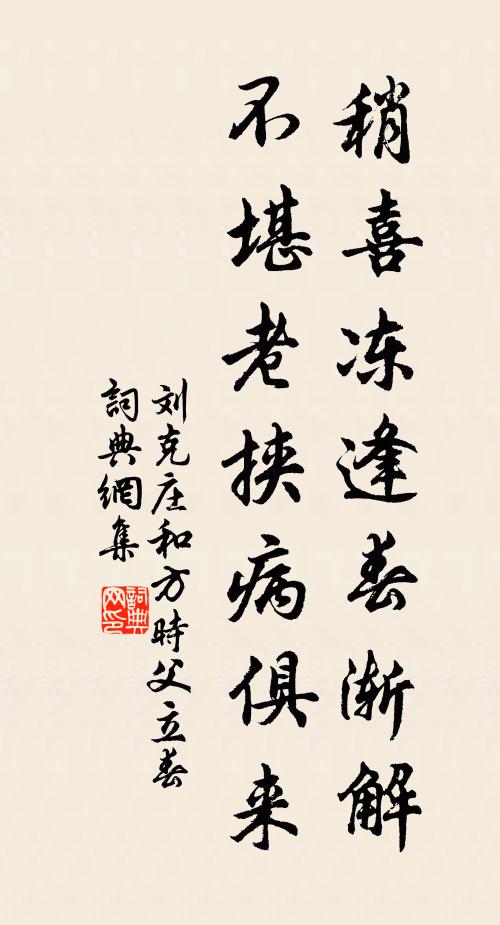 稍喜冻逢春渐解
不堪老挟病俱来
刘克庄和方時父立春
詞典網集
詞典网印